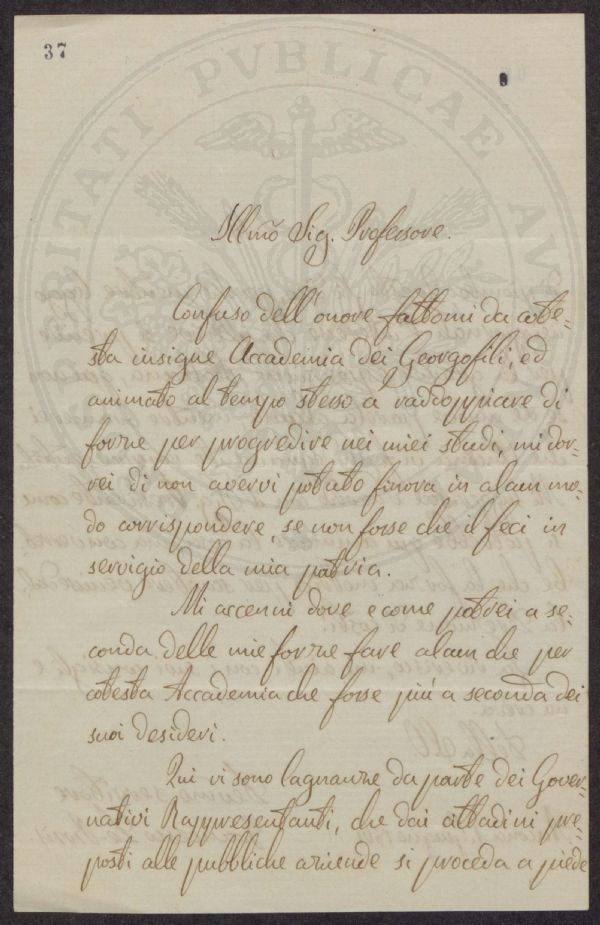 37
Illmo Sig. Professore.
Confuso dell'onore fattomi da cote-
sta insigne Accademia dei Georgofili, ed
animato al tempo stesso a raddoppiare di
forze per progredire nei miei studi, mi dor-
rei di non avervi potuto finora in alcun mo-
do corrispondere, se non fosse che il feci in
servigio della mia patria.
Mi accenni dove e come potrei a se-
conda delle mie forze fare alcun che per
cotesta Accademia che fosse più a seconda dei
suoi desideri.
Qui vi sono lagnanze da parte dei Gover-
nativi Rappresentanti, che dai cittadini pre-
posti alle pubbliche aziende si proceda a piede
PUBLICAE